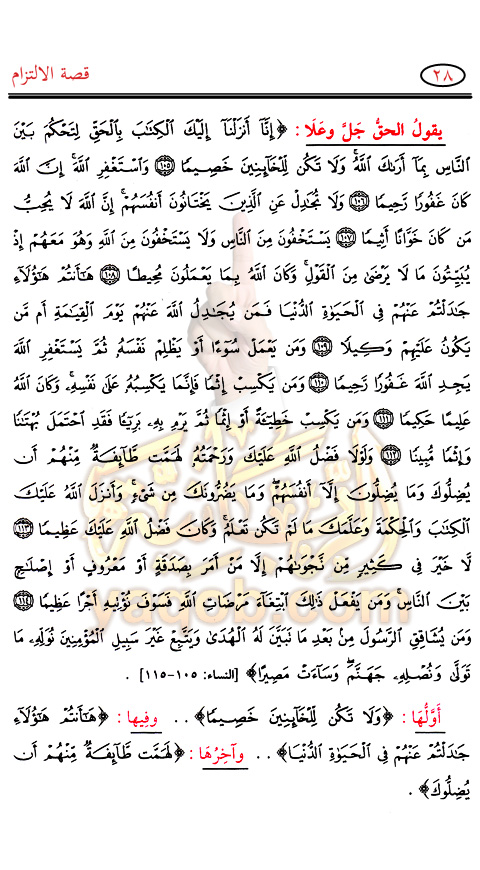 ٢٨ قصة الالتزام
يقولُ الحقُّ جَلَّ وعَلَا : ﴿ إِنَّآ أَنزَلْنَآ إِلَيْكَ ٱلْكِتَٰبَ بِٱلْحَقِّ لِتَحْكُمَ بَيْنَ
ٱلنَّاسِ بِمَآ أَرَىٰكَ ٱللَّهُ ۚ وَلَا تَكُن لِّلْخَآئِنِينَ خَصِيمًا ﴿١٠٥﴾ وَٱسْتَغْفِرِ ٱللَّهَ ۖ إِنَّ ٱللَّهَ
كَانَ غَفُورًا رَّحِيمًا ﴿١٠٦﴾ وَلَا تُجَٰدِلْ عَنِ ٱلَّذِينَ يَخْتَانُونَ أَنفُسَهُمْ ۚ إِنَّ ٱللَّهَ لَا يُحِبُّ
مَن كَانَ خَوَّانًا أَثِيمًا ﴿١٠٧﴾ يَسْتَخْفُونَ مِنَ ٱلنَّاسِ وَلَا يَسْتَخْفُونَ مِنَ ٱللَّهِ وَهُوَ مَعَهُمْ إِذْ
يُبَيِّتُونَ مَا لَا يَرْضَىٰ مِنَ ٱلْقَوْلِ ۚ وَكَانَ ٱللَّهُ بِمَا يَعْمَلُونَ مُحِيطًا ﴿١٠٨﴾ هَٰٓأَنتُمْ هَٰٓؤُلَآءِ
جَٰدَلْتُمْ عَنْهُمْ فِى ٱلْحَيَوٰةِ ٱلدُّنْيَا فَمَن يُجَٰدِلُ ٱللَّهَ عَنْهُمْ يَوْمَ ٱلْقِيَٰمَةِ أَم مَّن
يَكُونُ عَلَيْهِمْ وَكِيلًا ﴿١٠٩﴾ وَمَن يَعْمَلْ سُوٓءًا أَوْ يَظْلِمْ نَفْسَهُۥ ثُمَّ يَسْتَغْفِرِ ٱللَّهَ
يَجِدِ ٱللَّهَ غَفُورًا رَّحِيمًا ﴿١١٠﴾ وَمَن يَكْسِبْ إِثْمًا فَإِنَّمَا يَكْسِبُهُۥ عَلَىٰ نَفْسِهِۦ ۚ وَكَانَ ٱللَّهُ
عَلِيمًا حَكِيمًا ﴿١١١﴾ وَمَن يَكْسِبْ خَطِيٓـَٔةً أَوْ إِثْمًا ثُمَّ يَرْمِ بِهِۦ بَرِيٓـًٔا فَقَدِ ٱحْتَمَلَ بُهْتَٰنًا
وَإِثْمًا مُّبِينًا ﴿١١٢﴾ وَلَوْلَا فَضْلُ ٱللَّهِ عَلَيْكَ وَرَحْمَتُهُۥ لَهَمَّت طَّآئِفَةٌ مِّنْهُمْ أَن
يُضِلُّوكَ وَمَا يُضِلُّونَ إِلَّآ أَنفُسَهُمْ ۖ وَمَا يَضُرُّونَكَ مِن شَىْءٍ ۚ وَأَنزَلَ ٱللَّهُ عَلَيْكَ
ٱلْكِتَٰبَ وَٱلْحِكْمَةَ وَعَلَّمَكَ مَا لَمْ تَكُن تَعْلَمُ ۚ وَكَانَ فَضْلُ ٱللَّهِ عَلَيْكَ عَظِيمًا ﴿١١٣﴾
لَّا خَيْرَ فِى كَثِيرٍ مِّن نَّجْوَىٰهُمْ إِلَّا مَنْ أَمَرَ بِصَدَقَةٍ أَوْ مَعْرُوفٍ أَوْ إِصْلَٰحٍۭ
بَيْنَ ٱلنَّاسِ ۚ وَمَن يَفْعَلْ ذَٰلِكَ ٱبْتِغَآءَ مَرْضَاتِ ٱللَّهِ فَسَوْفَ نُؤْتِيهِ أَجْرًا عَظِيمًا ﴿١١٤﴾
وَمَن يُشَاقِقِ ٱلرَّسُولَ مِنۢ بَعْدِ مَا تَبَيَّنَ لَهُ ٱلْهُدَىٰ وَيَتَّبِعْ غَيْرَ سَبِيلِ ٱلْمُؤْمِنِينَ نُوَلِّهِۦ مَا
تَوَلَّىٰ وَنُصْلِهِۦ جَهَنَّمَ ۖ وَسَآءَتْ مَصِيرًا﴾ [النساء: ١٠٥-١١٥] .
أَوَّلُهَا : ﴿وَلَا تَكُن لِّلْخَآئِنِينَ خَصِيمًا﴾ . . وفِيها : ﴿هَٰٓأَنتُمْ هَٰٓؤُلَآءِ
جَٰدَلْتُمْ عَنْهُمْ فِى ٱلْحَيَوٰةِ ٱلدُّنْيَا﴾ . . وآخِرُهَا : ﴿لَهَمَّت طَّآئِفَةٌ مِّنْهُمْ أَن
يُضِلُّوكَ﴾ .
yaqob.com